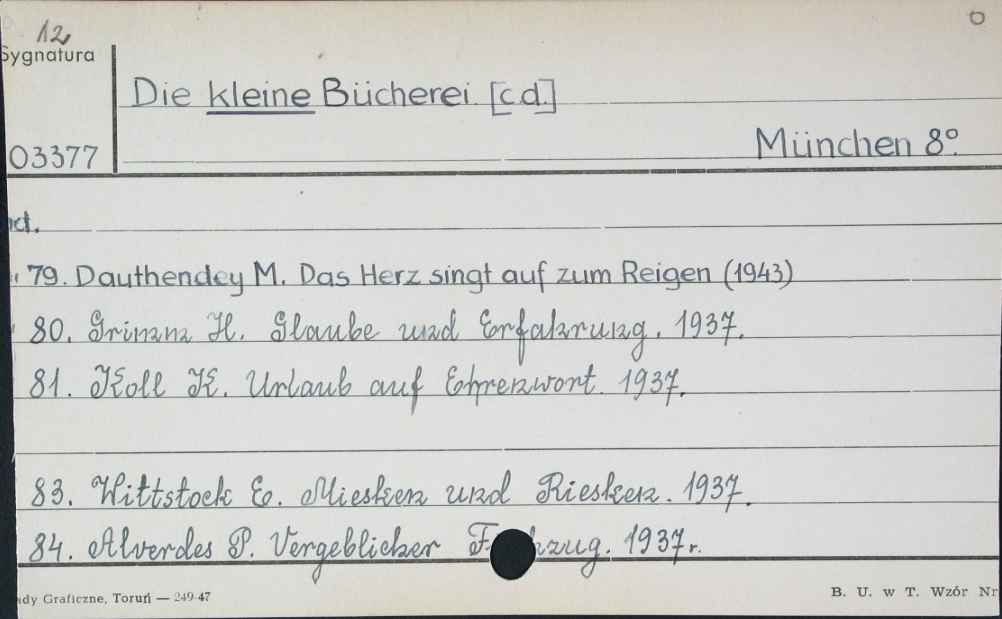 12
Sygnatura
Die kleine Bücherei [c.d.]
03377
München 8°.
79. Dauthendey M. Das Herz singt auf zum Reigen (1943)
80. Grimm H. Glaube und Erfahrung. 1937.
81. Kroll K. Urlaub auf Ehrenwort. 1937.
83. Wittstock E. Miesken und Riesken. 1937.
84. Alverdes P. Vergeblicher 1937 r.
Graficzne, Toruń — 249-47
B. U. w T. Wzór Nr